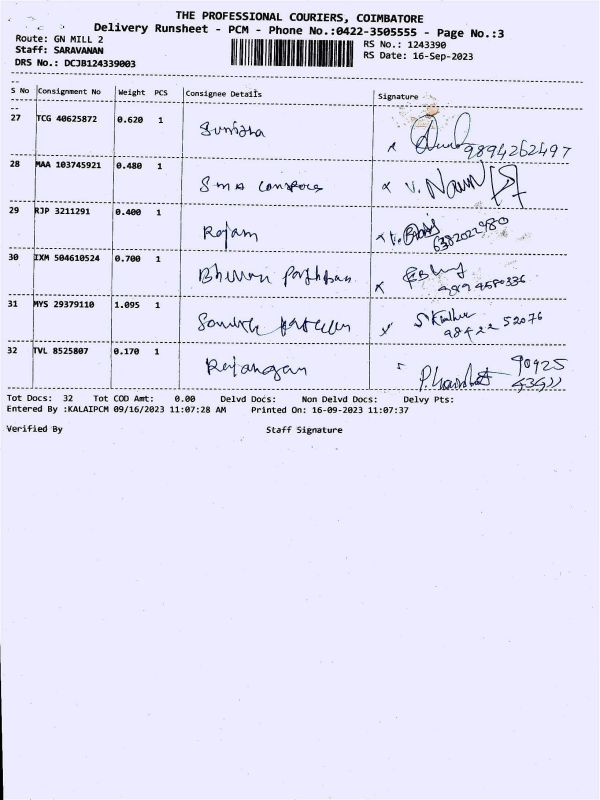 THE PROFESSIONAL COURIERS, COIMBATORE
Delivery Runsheet - PCM - Phone No.:0422-3505555 - Page No.:3
Route: GN MILL 2
RS No.: 1243390
Staff: SARAVANAN
RS Date: 16-Sep-2023
DRS No.: DCJB124339003
S No Consignment No Weight PCS Consignee Details Signature
27 TCG 40625872 0.620 1 Sunitha
9894262497
28 MAA 103745921 0.480 1 Sma
x V.
29 RJP 3211291 0.400 1 Rajam
x V. 6382022980
30 IXM 504610524 0.700 1
x
31 MYS 29379110 1.095 1
98422 52076
32 TVL 8525807 0.170 1 Rajangan
90925
P.
Tot Docs: 32 Tot COD Amt: 0.00 Delvd Docs: Non Delvd Docs: Delvy Pts:
Entered By :KALAIPCM 09/16/2023 11:07:28 AM Printed On: 16-09-2023 11:07:37
Verified By Staff Signature